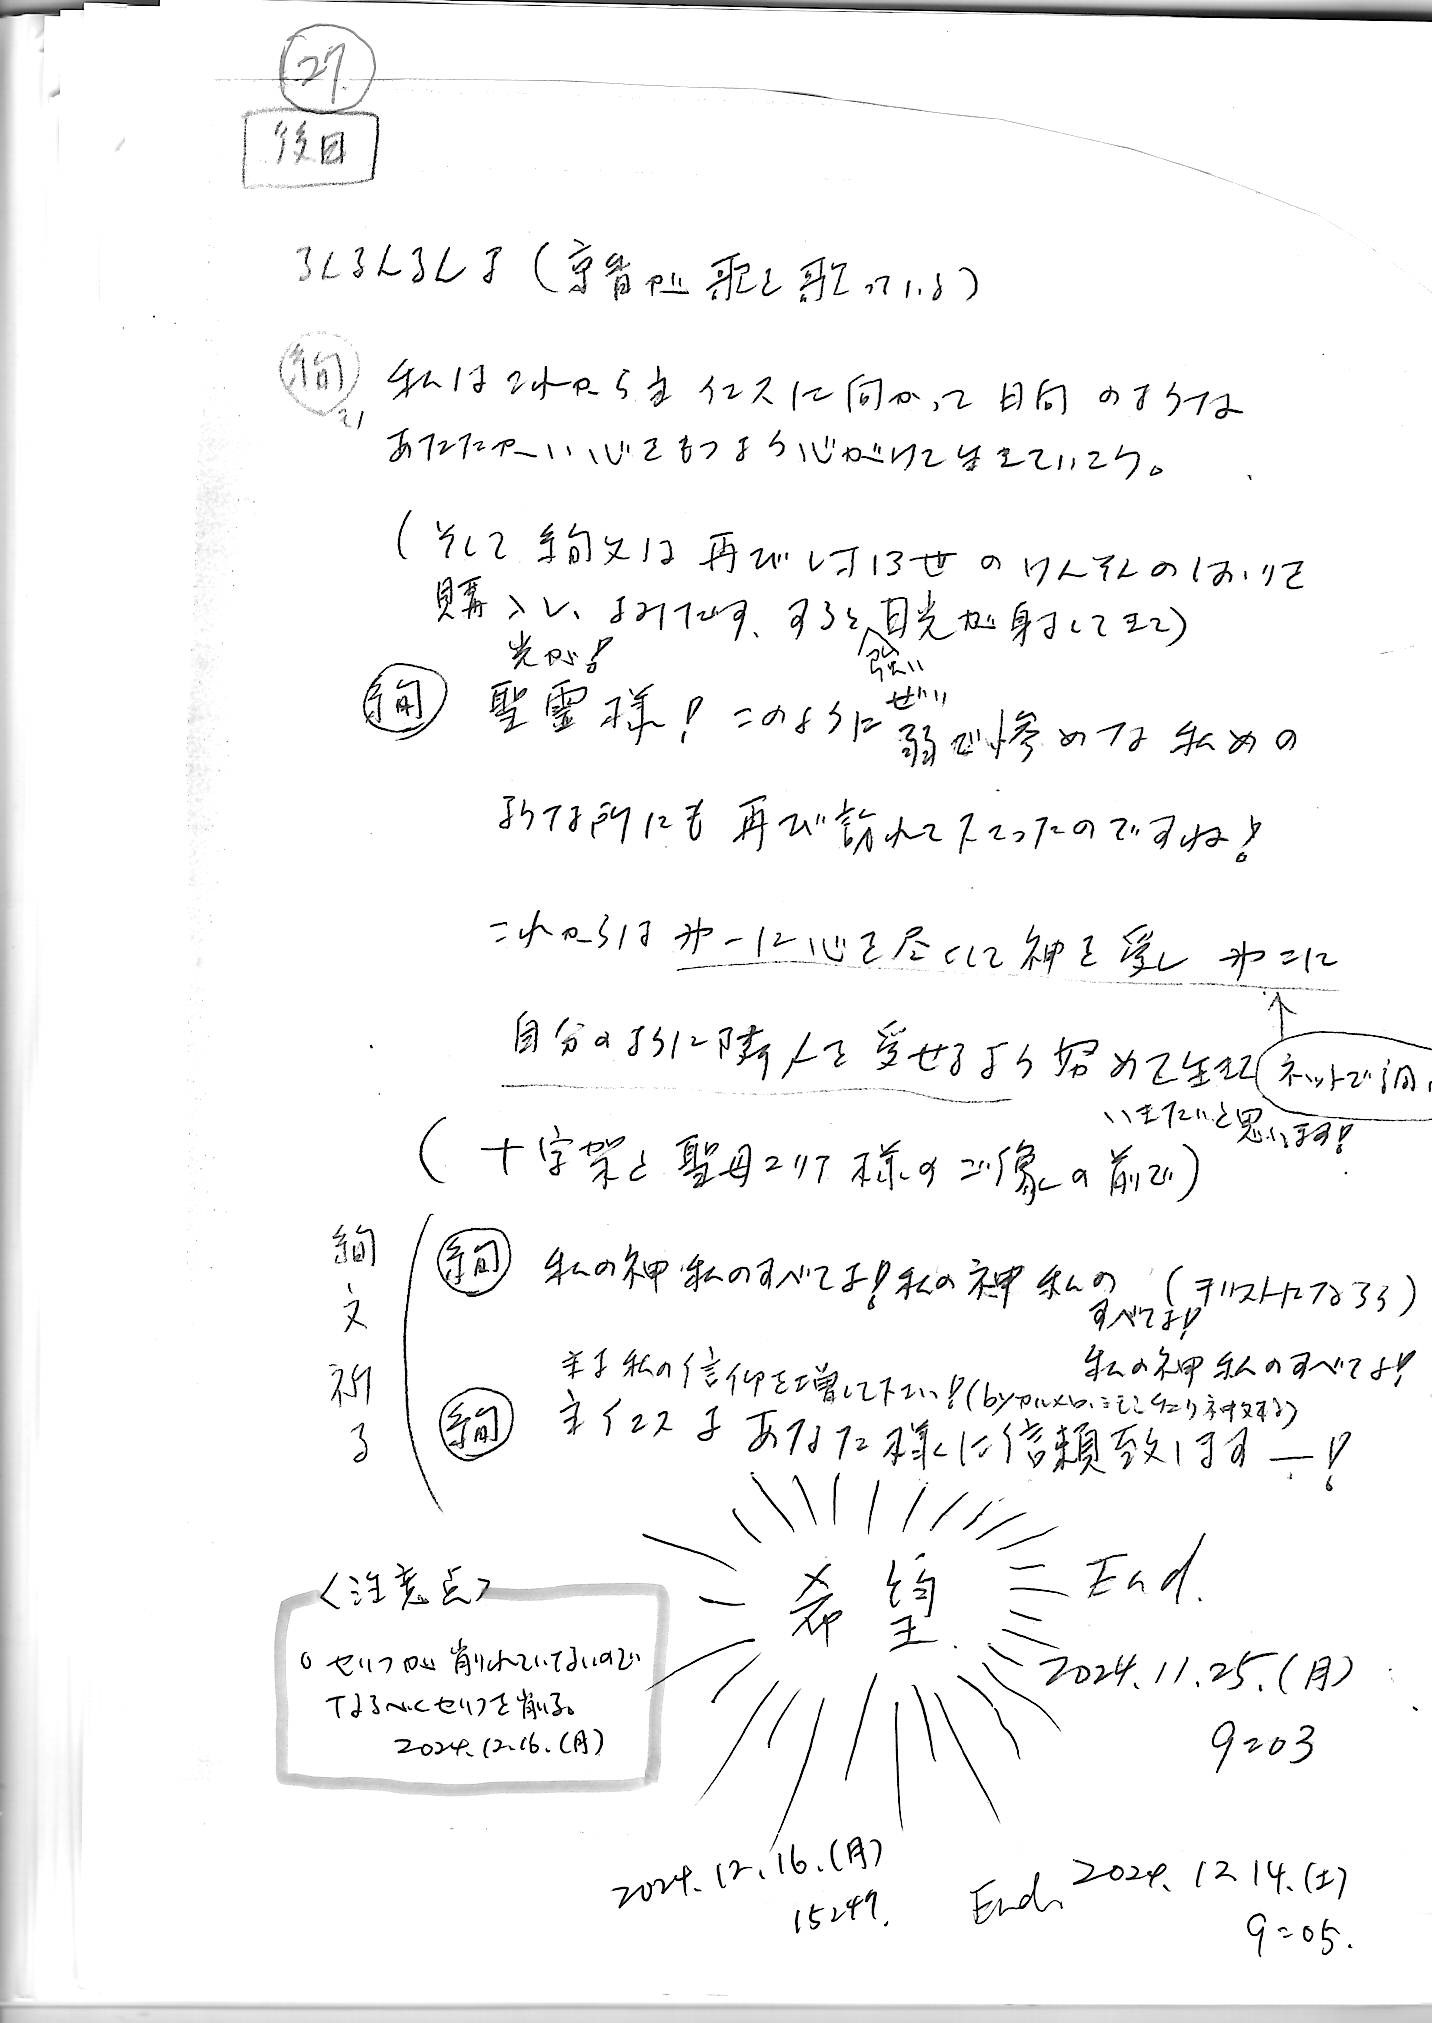 27.
後日
るんるんるんる(京省が歌を歌っている)
絢
21
私はこれから主イエスに向かって日向のような
あたたかい心をもつよう心がけて生きていこう。
(そして絢文は再び
購入し、よみだす、すると日光が射してきて)
強い
光が!
絢
聖霊様!このように弱で惨めな私めの
ぜい
ような所にも再び訪れて下さったのですね!
これからは才一に心を尽くして神を愛し 才二に
自分のように隣人を愛せるよう努めて生きて
ネットで調
いきたいと思います!
(十字架と聖母マリア様のご像の前で)
絢文祈る
絢
私の神 私のすべてよ!私の神 私の
すべてよ!
(キリストにならう)
私の神 私のすべてよ!
主よ私の信仰を増して下さい!
絢
主イエスよ あなた様に信頼致します―!
希望
End.
2024.11.25.(月)
9=03
<注意点>
○ セリフが削れていないので
なるべくセリフを削る。
2024.12.16.(月)
2024.12.16.(月)
15=47.
End.
2024.12.14.(土)
9=05.